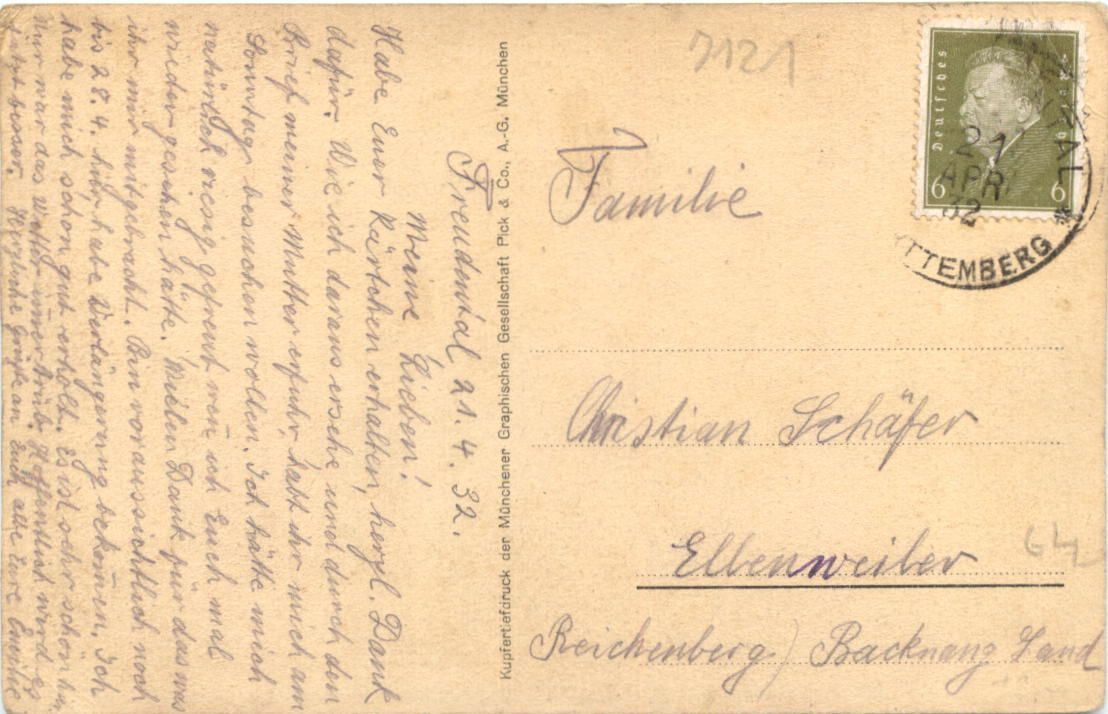 Freudental 21.4.32.
Meine Lieben!
Habe Euer Kärtchen erhalten, herzl. Dank
dafür. Wie ich daraus ersehe und durch den
Brief meiner Mutter erfuhr habt ihr mich am
Sonntag besuchen wollen. Ich hätte mich
natürlich riesig gefreut wen̄ ich Euch mal
wieder gesehen hätte. Vielen Dank für das was
ihr mir mitgebracht. Bin voraussichtlich noch
bis 28.4. hier, habe Verlängerung bekom̄en. Ich
habe mich schon gut erholt. Es ist sehr schön hier
Nur war das Wetter im̄er trüb. Hoffentlich wird es
jetzt besser. Herzliche Grüße an Euch alle Eure Emilie
Kupfertiefdruck der Münchener Graphischen Gesellschaft Pick & Co., A.-G. München
7121
Deutsches
6 6
21
APR
32
TTEMBERG *
Familie
Christian Schäfer
Ellenweiler
Reichenberg / Backnang Land